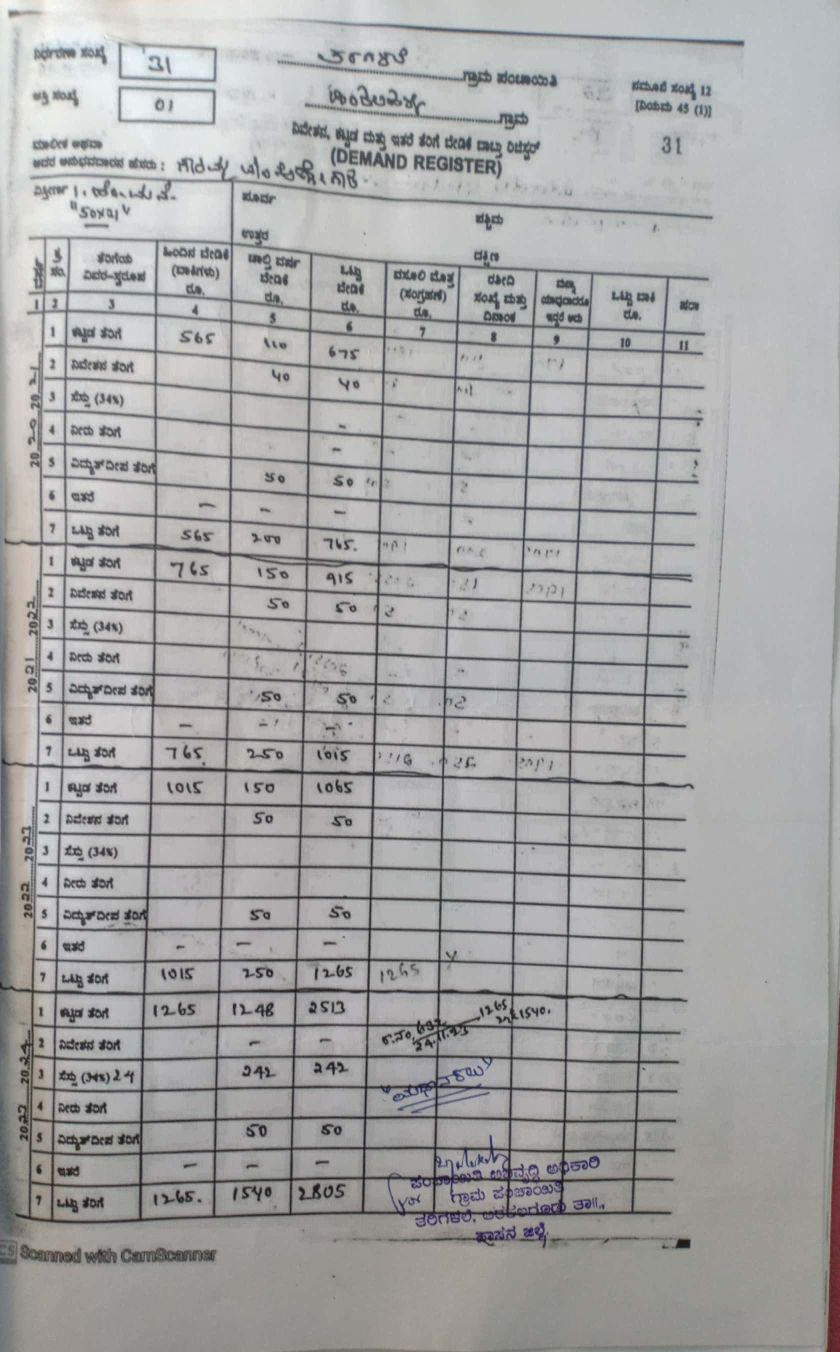 ನಿರ್ಧರಣಾ ಸಂಖ್ಯೆ 31 ತರಿಗಳಲೆ ಗ್ರಾಮ ಪಂಚಾಯಿತಿ ನಮೂನೆ ಸಂಖ್ಯೆ 12
ಆಸ್ತಿ ಸಂಖ್ಯೆ 01 ಗ್ರಾಮ [ನಿಯಮ 45 (1)]
ನಿವೇಶನ, ಕಟ್ಟಡ ಮತ್ತು ಇತರೆ ತೆರಿಗೆ ಬೇಡಿಕೆ ಬಾಬ್ತು ರಿಜಿಸ್ಟರ್ 31
ಮಾಲೀಕ ಅಥವಾ (DEMAND REGISTER)
ಅದರ ಅನುಭವದಾರನ ಹೆಸರು :
ವಿಸ್ತೀರ್ಣ ಪೂರ್ವ ಪಶ್ಚಿಮ
"50x21"
ಉತ್ತರ ದಕ್ಷಿಣ
ವರ್ಷ ಕ್ರ ಸಂ. ತೆರಿಗೆಯ ವಿವರ-ಸ್ವರೂಪ ಹಿಂದಿನ ಬೇಡಿಕೆ (ಬಾಕಿಗಳು) ರೂ. ಚಾಲ್ತಿ ವರ್ಷ ಬೇಡಿಕೆ ರೂ. ಒಟ್ಟು ಬೇಡಿಕೆ ರೂ. ವಸೂಲಿ ಮೊತ್ತ (ಸಂಗ್ರಹಣೆ) ರೂ. ರಶೀದಿ ಸಂಖ್ಯೆ ಮತ್ತು ದಿನಾಂಕ ವಜಾ ಯಾವುದಾದರೂ ಇದ್ದರೆ ಅದು ಒಟ್ಟು ಬಾಕಿ ರೂ. ಷರಾ
1 2 3 4 5 6 7 8 9 10 11
2020 2021
1 ಕಟ್ಟಡ ತೆರಿಗೆ 565 110 675
2 ನಿವೇಶನ ತೆರಿಗೆ 40 40
3 ಸೆಸ್ಸು (34%)
4 ನೀರು ತೆರಿಗೆ -
5 ವಿದ್ಯುತ್‌ದೀಪ ತೆರಿಗೆ 50 50
6 ಇತರೆ - - -
7 ಒಟ್ಟು ತೆರಿಗೆ 565 200 765.
2021 2022
1 ಕಟ್ಟಡ ತೆರಿಗೆ 765 150 915
2 ನಿವೇಶನ ತೆರಿಗೆ 50 50
3 ಸೆಸ್ಸು (34%)
4 ನೀರು ತೆರಿಗೆ
5 ವಿದ್ಯುತ್‌ದೀಪ ತೆರಿಗೆ 50 50
6 ಇತರೆ - - -
7 ಒಟ್ಟು ತೆರಿಗೆ 765 250 1015
2022 2023
1 ಕಟ್ಟಡ ತೆರಿಗೆ 1015 150 1065
2 ನಿವೇಶನ ತೆರಿಗೆ 50 50
3 ಸೆಸ್ಸು (34%)
4 ನೀರು ತೆರಿಗೆ
5 ವಿದ್ಯುತ್‌ದೀಪ ತೆರಿಗೆ 50 50
6 ಇತರೆ - - -
7 ಒಟ್ಟು ತೆರಿಗೆ 1015 250 1265 1265
2023 2024
1 ಕಟ್ಟಡ ತೆರಿಗೆ 1265 1248 2513 1265
ರ.ನಂ. 24.11.23 1540.
2 ನಿವೇಶನ ತೆರಿಗೆ - -
3 ಸೆಸ್ಸು (34%) 24 242 242
4 ನೀರು ತೆರಿಗೆ
5 ವಿದ್ಯುತ್‌ದೀಪ ತೆರಿಗೆ 50 50
6 ಇತರೆ - - -
7 ಒಟ್ಟು ತೆರಿಗೆ 1265. 1540 2805
ಪಂಚಾಯಿತಿ ಅಭಿವೃದ್ಧಿ ಅಧಿಕಾರಿ
for ಗ್ರಾಮ ಪಂಚಾಯಿತಿ
ತರಿಗಳಲೆ, ಅರಕಲಗೂಡು ತಾ||.,
ಹಾಸನ ಜಿಲ್ಲೆ.
CS Scanned with CamScanner